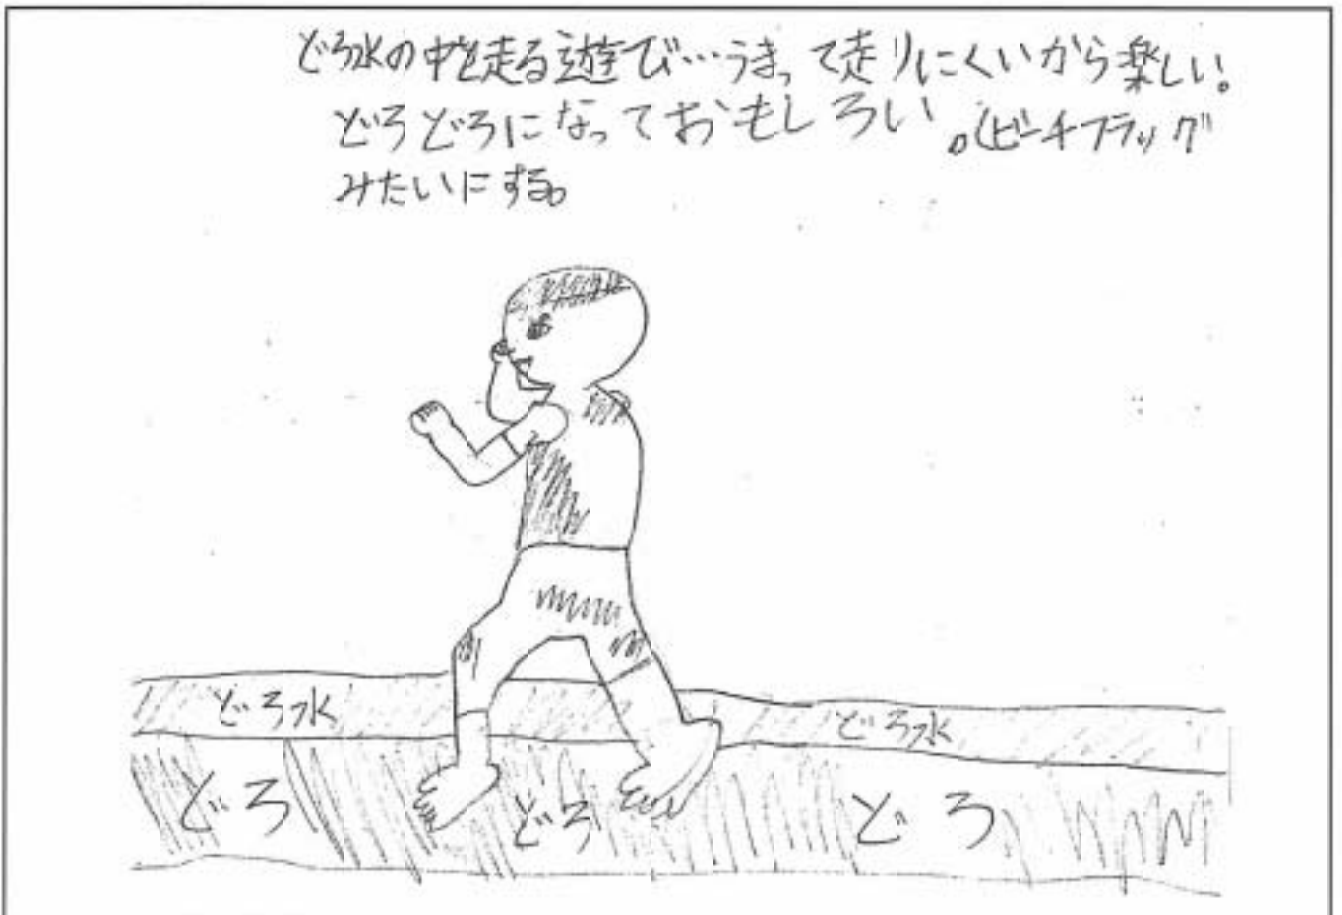 どろ水の中を走る遊び…うまって走りにくいから楽しい。
どろどろになっておもしろい。(ビーチフラッグ
みたいにする。
どろ水
どろ水
どろ
どろ
どろ